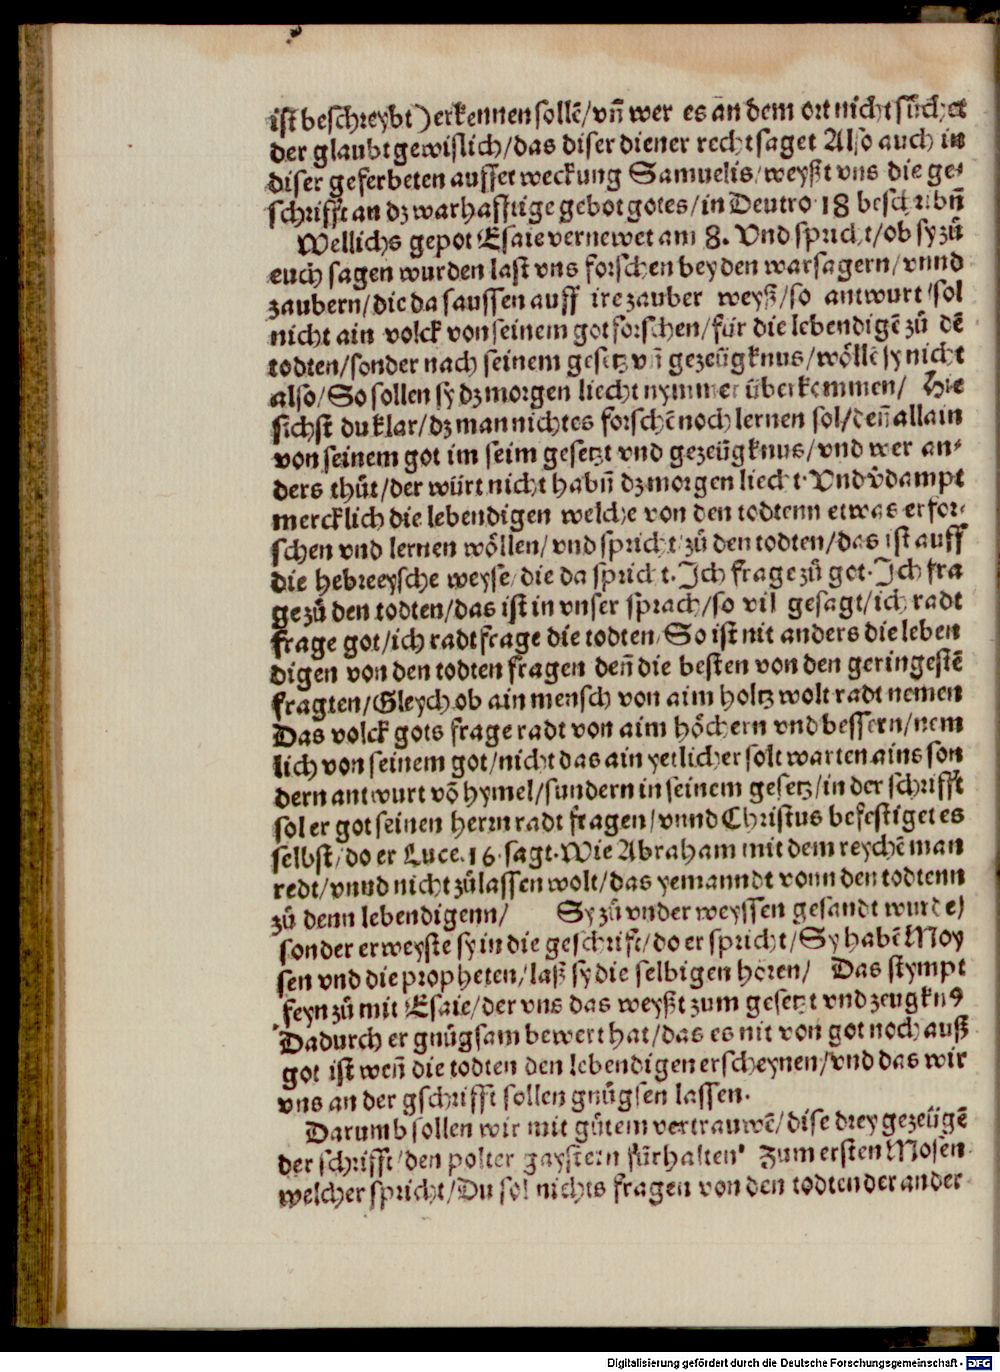 ist beschreybt) erkennen sollē/vñ wer es an dem ort nicht sůchet
der glaubt gewislich/das diser diener recht saget Also auch in
diser geferbeten auffet weckung Samuelis/weyßt vns die ge⸗
schrifft an dz warhafftige gebot gotes/in Deutro 18 beschribñ
Wellichs gepot Esaie vernewet am 8. Vnd spricht/ob sy zů
euch sagen wurden last vns forschen bey den warsagern/vnnd
zaubern/die da saussen auff ire zauber weyß/so antwurt/sol
nicht ain volck von seinem got forschen/für die lebendigē zů dē
todten/sonder nach seinem gesetz vñ gezeügknus/wöllē sy nicht
also/So sollen sy dz morgen liecht nymmer überkemmen/ Hie
sichst du klar/dz man nichtes forschē noch lernen sol/deñ allain
von seinem got im seim gesetzt vnd gezeügknus/vnd wer an⸗
ders thůt/der würt nicht habñ dz morgen liecht. Vnd v̄dampt
mercklich die lebendigen welche von den todtenn etwas erfor⸗
schen vnd lernen wöllen/vnd spricht/zů den todten/das ist auff
die hebreeysche weyse/die da spricht. Ich frage zů got. Ich fra
ge zů den todten/das ist in vnser sprach/so vil gesagt/ich radt
frage got/ich radt frage die todten/So ist nit anders die leben
digen von den todten fragen deñ die besten von den geringestē
fragten/Gleych ob ain mensch von aim holtz wolt radt nemen
Das volck gots frage radt von aim höchern vnd bessern/nem
lich von seinem got/nicht das ain yetlicher solt warten ains son
dern antwurt vō hymel/sundern in seinem gesetz/in der schrifft
sol er got seinen herrn radt fragen/vnnd Christus befestiget es
selbst/do er Luce. 16. sagt. Wie Abraham mit dem reychē man
redt/vnnd nicht zůlassen wolt/das yemanndt vonn den todtenn
zů denn lebendigenn/ Sy zů vnder weyssen gesandt wurde/
sonder er weyste sy in die geschrift/do er spricht/Sy habē Moy
sen vnd die propheten/laß sy die selbigen hören/ Das stympt
feyn zů mit Esaie/der vns das weyßt zum gesetzt vnd zeugknꝰ
Dadurch er gnůgsam bewert hat/das es nit von got noch auß
got ist weñ die todten den lebendigen erscheynen/vnd das wir
vns an der gschrifft sollen gnůgsen lassen.
Darumb sollen wir mit gůtem vertrauwē/dise drey gezeügē
der schrifft/den polter gaystern fürhalten. Zum ersten Mosen
welcher spricht/Du sol nichts fragen von den todten der ander
Digitalisierung gefördert durch die Deutsche Forschungsgemeinschaft - DFG